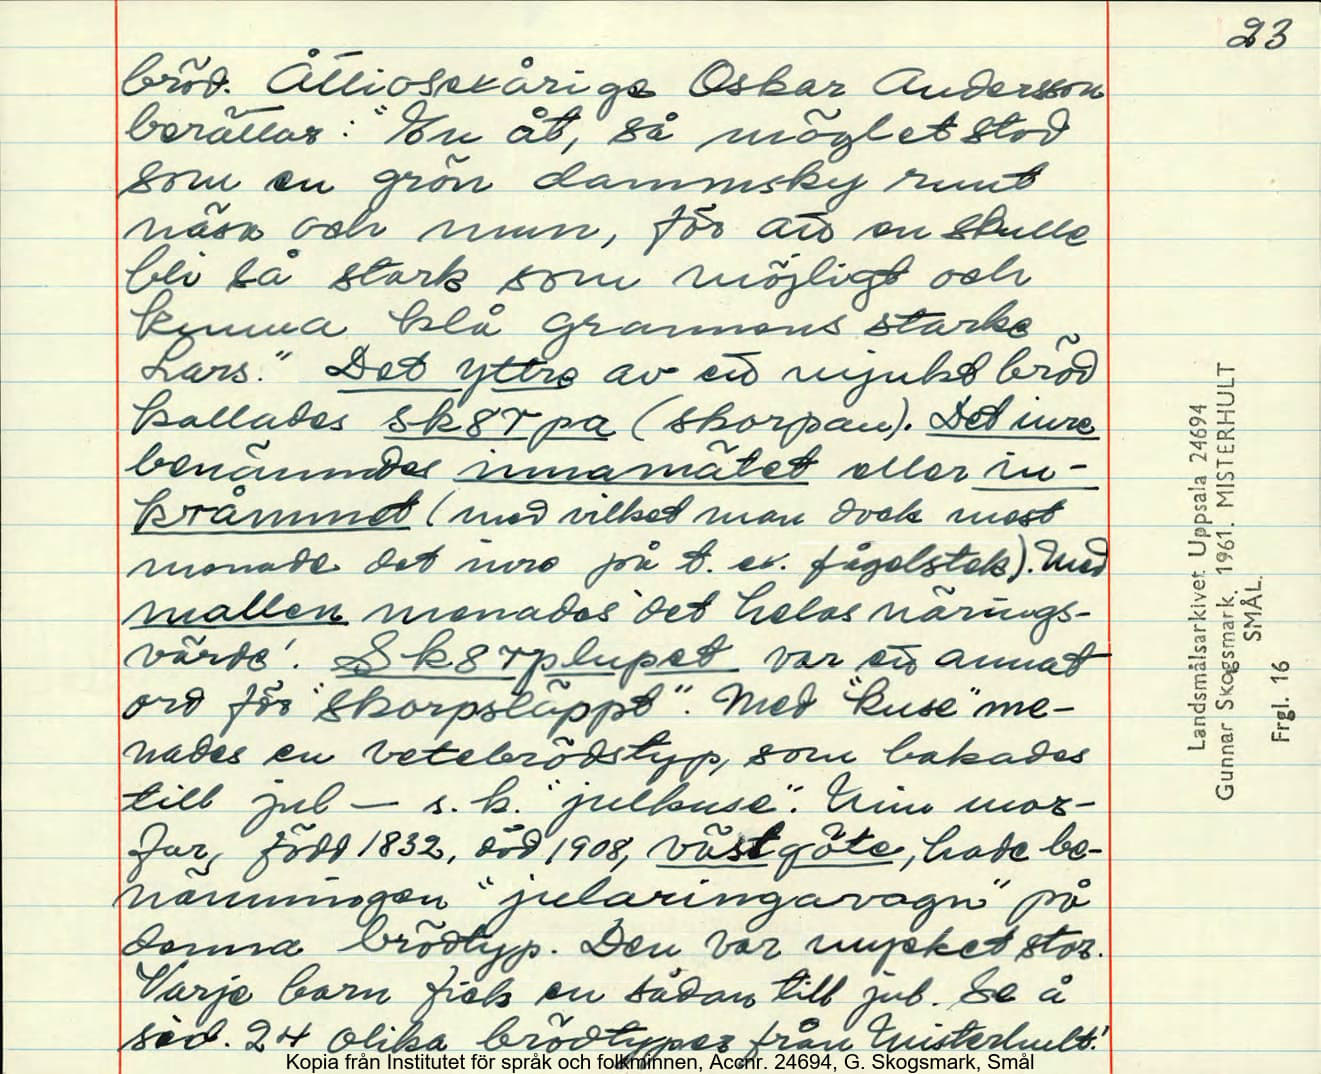 23
bröd. Åttiosexårige Oskar Andersson
berättar: "En åt, så möglet stod
som en grön dammsky runt
näsa och mun, för att en skulle
bli så stark som möjligt och
kunna klå grannens starke
Lars." Det yttre av ett mjukt bröd
kallades sk8rpa (skorpan). Det inre
benämndes innamätet eller in-
kråmmet (med vilket man dock mest
menade det inre på t. ex. fågelstek). Med
mallen menades 'det helas närings-
värde'. Sk8rplupet var ett annat
ord för "skorpsläppt". Med "kuse" me-
nades en vetebrödstyp, som bakades
till jul — s. k. "julkuse". Min mor-
far, född 1832, död 1908, västgöte, hade be-
nämningen "jularingavagn" på
denna brödtyp. Den var mycket stor.
Varje barn fick en sådan till jul. Se å
sid. 24 olika brödtyper från Misterhult!
Landsmålsarkivet Uppsala 24694
Gunnar Skogsmark. 1961. MISTERHULT
SMÅL.
Frgl. 16
Kopia från Institutet för språk och folkminnen, Accnr. 24694, G. Skogsmark, Smål